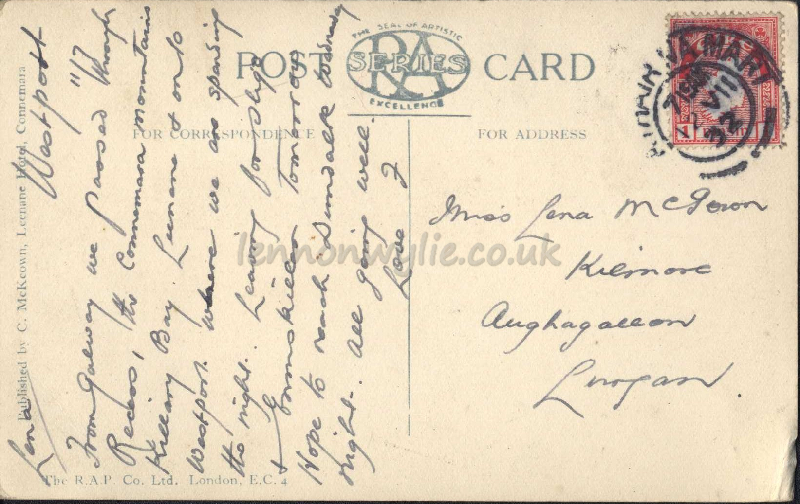 POST CARD
THE SEAL OF ARTISTIC
RA
SERIES
EXCELLENCE
FOR CORRESPONDENCE
FOR ADDRESS
Westport
11/7
Lena
From Galway we passed through
Recess, the Connemara mountains
Killary Bay. Leenane & on to
Westport where we are spending
the night. Leaving for Sligo
& Enniskillen Tomorrow
Hope to reach Dundalk Wednesday
night. All going well.
Love
Miss Lena McGeown
Kilmore
Aughagallon
Lurgan
Published by C. McKeown, Leenane Hotel, Connemara
The R.A.P. Co. Ltd. London, E.C. 4
lennonwylie.co.uk
VII
32